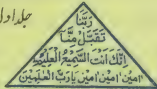 جلد اول
رَبَّنَا
تَقَبَّلْ مِنَّا
اِنَّكَ اَنْتَ السَّمِيْعُ الْعَلِيْمُ
اٰمین اٰمین اٰمین یَا رَبَّ الْعٰلَمِیْنَ